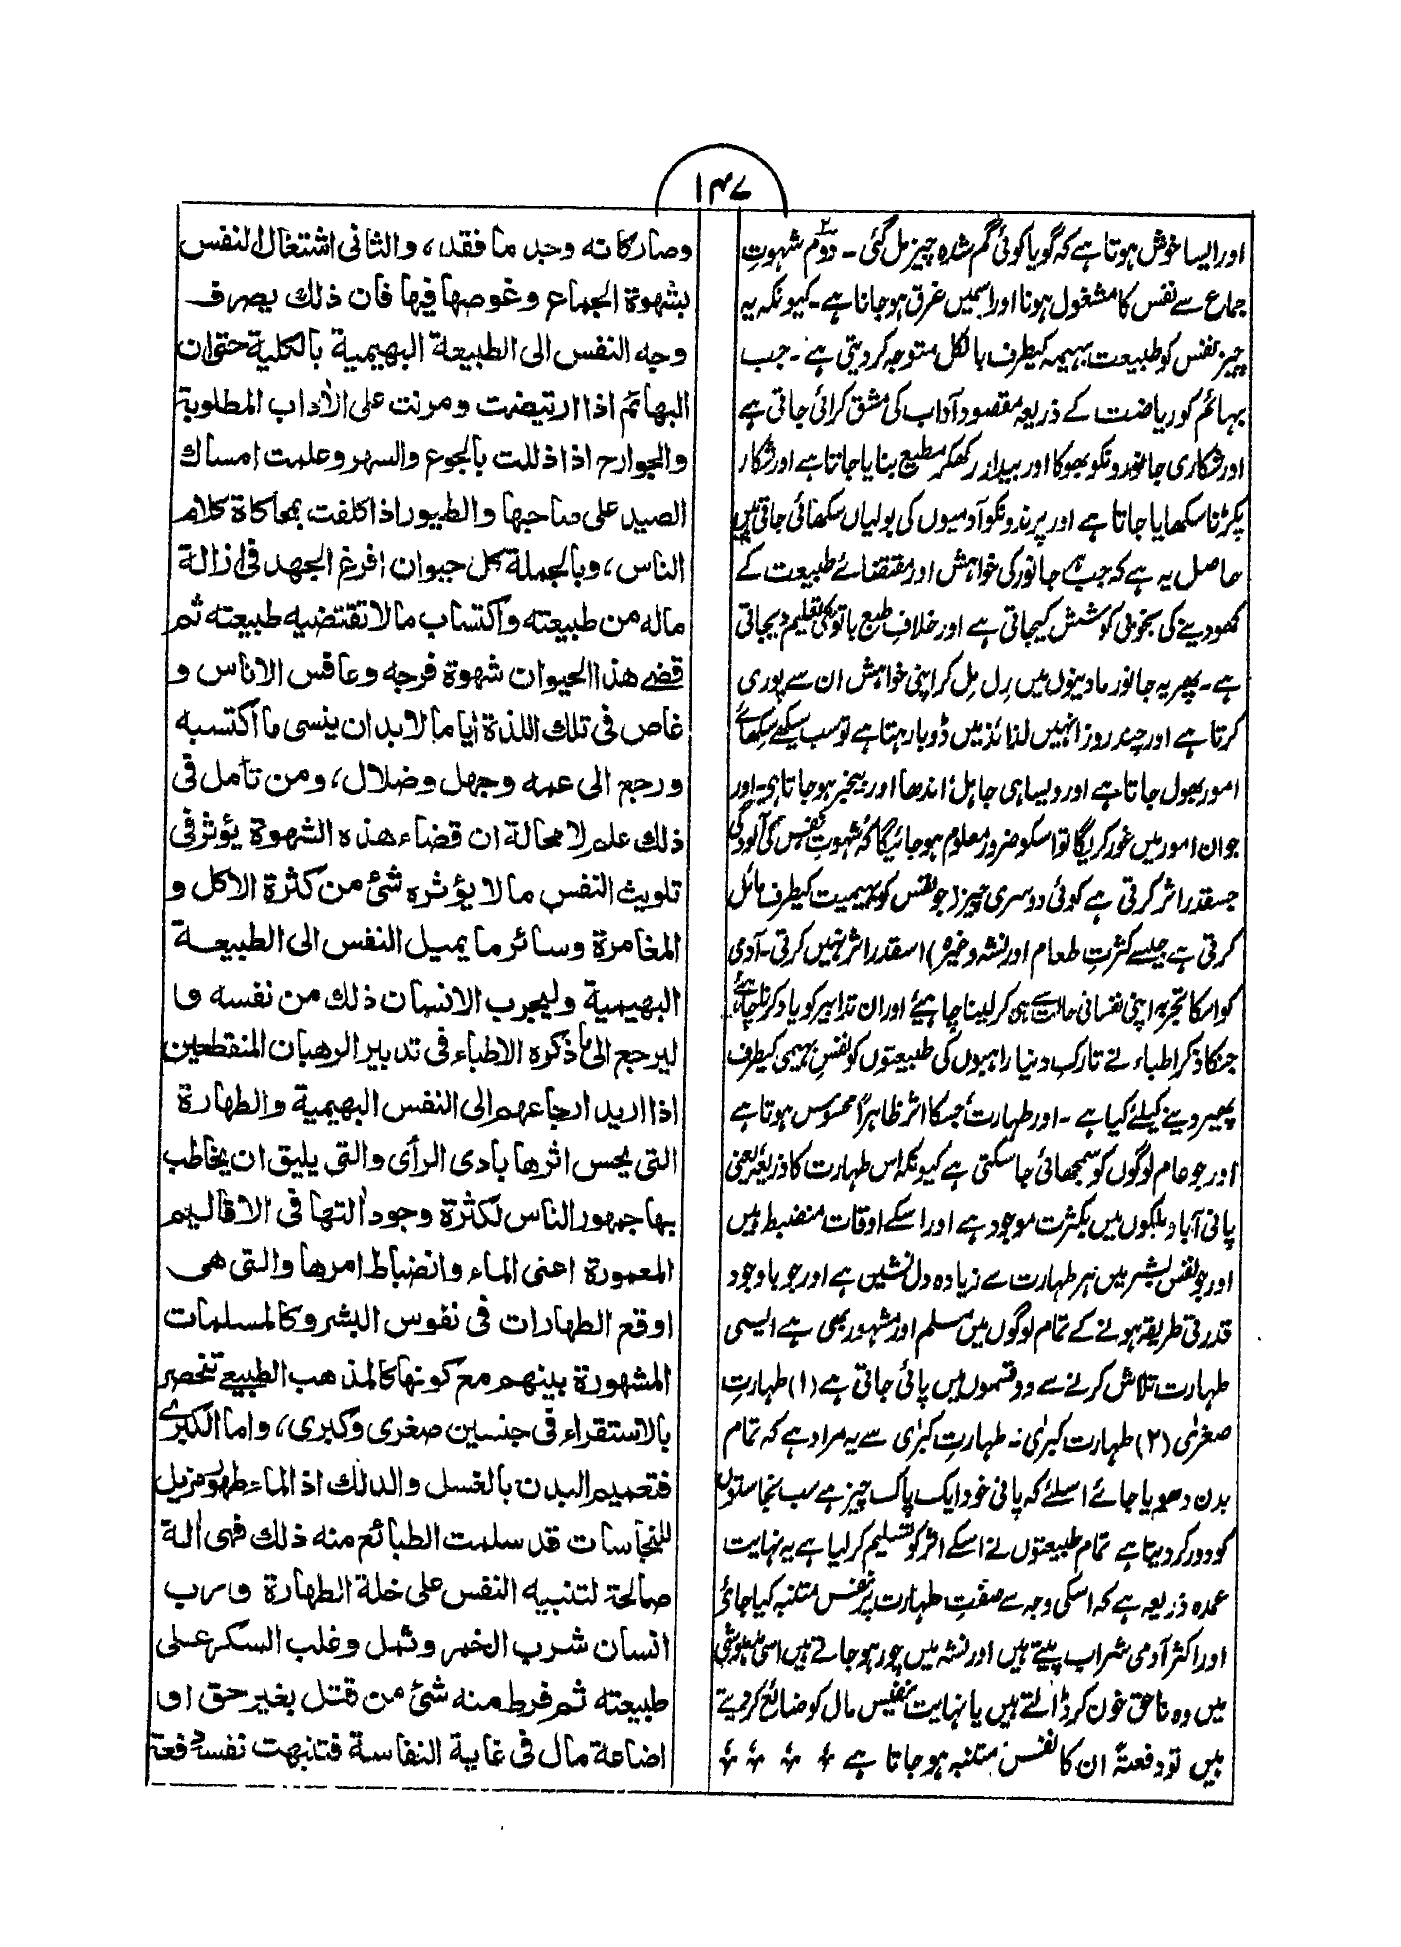 ۱۴۷
اور ایسا خوش ہوتا ہے کہ گویا کوئی گم شدہ چیز مل گئی ۔ دوم شہوتِ
جماع سے نفس کا مشغول ہونا اور اسمیں غرق ہو جانا ہے ۔ کیونکہ یہ
چیز نفس کو طبیعت بہیمیہ کیطرف بالکل متوجہ کر دیتی ہے ۔ جب
بہائم کو ریاضت کے ذریعہ مقصود آداب کی مشق کرائی جاتی ہے
اور شکاری جانورونکو بھوکا اور بیدار رکھکر مطیع بنایا جاتا ہے اور شکار
پکڑنا سکھایا جاتا ہے اور پرندونکو آدمیوں کی بولیاں سکھائی جاتی ہیں
حاصل یہ ہے کہ جب جانور کی خواہش اور مقتضائے طبیعت کے
کھو دینے کی بخوبی کوشش کیجاتی ہے اور خلافِ طبع باتونکی تعلیم دیجاتی
ہے ۔ پھر یہ جانور مادینوں میں رل مل کر اپنی خواہش ان سے پوری
کرتا ہے اور چند روز انہیں لذائذ میں ڈوبا رہتا ہے تو سب سیکھے سکھائے
امور بھول جاتا ہے اور ویسا ہی جاہل اندھا اور بیخبر ہو جاتا ہی ۔ اور
جو ان امور میں غور کریگا تو اسکو ضرور معلوم ہو جائیگا کہ شہوتِ نفس کی آلودگی
جسقدر اثر کرتی ہے کوئی دوسری چیز (جو نفس کو بہیمیت کیطرف مائل
کرتی ہے جیسے کثرتِ طعام اور نشہ وغیرہ) اسقدر اثر نہیں کرتی ۔ آدمی
کو اسکا تجربہ اپنی نفسانی حالت سے ہی کر لینا چاہیئے اور ان تدابیر کو یاد کرنا چاہئے
جنکا ذکر اطباء نے تارکِ دنیا راہبوں کی طبیعتوں کو نفسِ بہیمی کیطرف
پھیر دینے کیلئے کیا ہے ۔ اور طہارت جسکا اثر ظاہراً محسوس ہوتا ہے
اور جو عام لوگوں کو سمجھائی جا سکتی ہے کیونکہ اس طہارت کا ذریعہ یعنی
پانی آباد ملکوں میں بکثرت موجود ہے اور اسکے اوقات منضبط ہیں
اور جو نفس بشر میں ہر طہارت سے زیادہ دل نشیں ہے اور جو باوجود
قدرتی طریقہ ہونے کے تمام لوگوں میں مسلم اور مشہور بھی ہے ایسی
طہارت تلاش کرنے سے دو قسموں میں پائی جاتی ہے (۱) طہارتِ
صغریٰ (۲) طہارت کبریٰ ۔ طہارتِ کبریٰ سے یہ مراد ہے کہ تمام
بدن دھویا جائے اسلئے کہ پانی خود ایک پاک چیز ہے سب نجاستوں
کو دور کر دیتا ہے تمام طبیعتوں نے اسکے اثر کو تسلیم کر لیا ہے یہ نہایت
عمدہ ذریعہ ہے کہ اسکی وجہ سے صفتِ طہارت پر نفس متنبہ کیا جائے
اور اکثر آدمی شراب پیتے ہیں اور نشہ میں چور ہو جاتے ہیں اسی بیہوشی
میں وہ ناحق خون کر ڈالتے ہیں یا نہایت نفیس مال کو ضائع کر دیتے
ہیں تو دفعتہً ان کا نفس متنبہ ہو جاتا ہے
وصار كانه وجد ما فقد، والثانى اشتغال النفس
بشهوة الجماع وغوصها فيها فان ذلك يصرف
وجه النفس الى الطبيعة البهيمية بالكلية حتى ان
البهائم اذا ارتيضت ومرنت على الاٰداب المطلوبة
والجوارح اذا ذللت بالجوع والسهر وعلمت امساك
الصيد على صاحبها والطيور اذا كلفت بمحاكاة كلام
الناس، وبالجملة كل حيوان افرغ الجهد فى ازالة
ماله من طبيعته واكتساب ما لا تقتضيه طبيعته ثم
قضے هذا الحيوان شهوة فرجه وعافس الاناس و
غاص فى تلك اللذة اياما لا بد ان ينسى ما اكتسبه
ورجع الى عمه وجهل وضلال، ومن تأمل فى
ذلك علم لا محالة ان قضاء هذه الشهوة يؤثر فى
تلويث النفس ما لا يؤثره شئ من كثرة الاكل و
المغامرة وسائر ما يميل النفس الى الطبيعة
البهيمية وليجرب الانسان ذلك من نفسه و
ليرجع الى ما ذكره الاطباء فى تدبير الرهبان المنقطعين
اذا اريد ارجاعهم الى النفس البهيمية والطهارة
التى يحس اثرها بادى الرأى والتى يليق ان يخاطب
بها جمهور الناس لكثرة وجود اٰلتها فى الاقاليم
المعمورة اعنى الماء وانضباط امرها والتى هى
اوقع الطهارات فى نفوس البشر وكالمسلمات
المشهورة بينهم مع كونها كالمذهب الطبيعے تنحصر
بالاستقراء فى جنسين صغرى وكبرى، واما الكبرے
فتعميم البدن بالغسل والدلك اذ الماء طهور مزيل
للنجاسات قد سلمت الطبائع منه ذلك فهى اٰلة
صالحة لتنبيه النفس على خلة الطهارة ورب
انسان شرب الخمر وثمل وغلب السكر على
طبيعته ثم فرط منه شئ من قتل بغير حق او
اضاعة مال فى غاية النفاسة فتنبهت نفسه دفعة